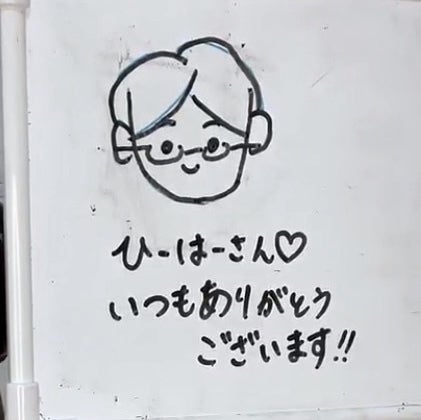 ひーはーさん♡
いつもありがとう
ございます!!